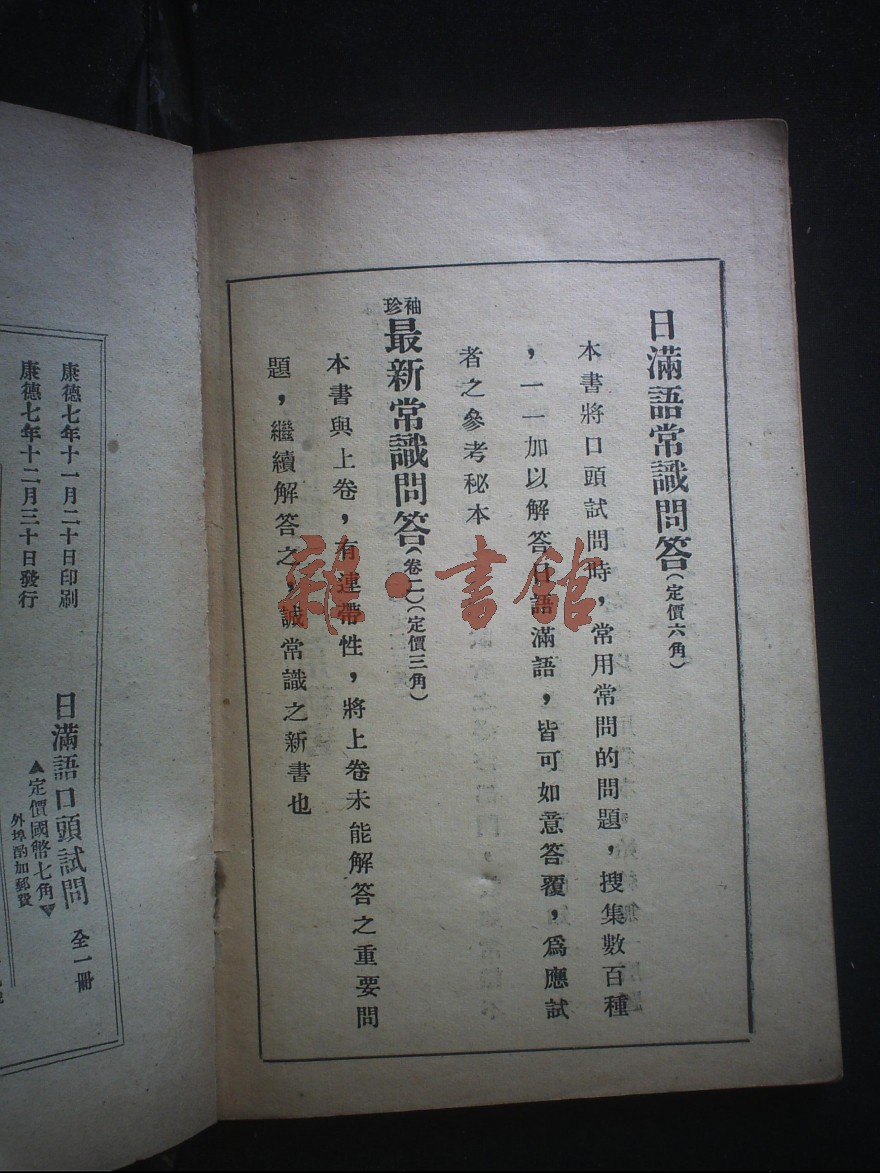 日滿語常識問答(定價六角)
本書將口頭試問時,常用常問的問題,搜集數百種
,一一加以解答日語滿語,皆可如意答覆,爲應試
者之參考秘本
袖珍
最新常識問答(卷二)(定價三角)
本書與上卷,有連帶性,將上卷未能解答之重要問
題,繼續解答之,誠常識之新書也
康德七年十一月二十日印刷
康德七年十二月三十日發行
日滿語口頭試問 全一冊
▲定價國幣七角▼
外埠酌加郵費
雜·書館